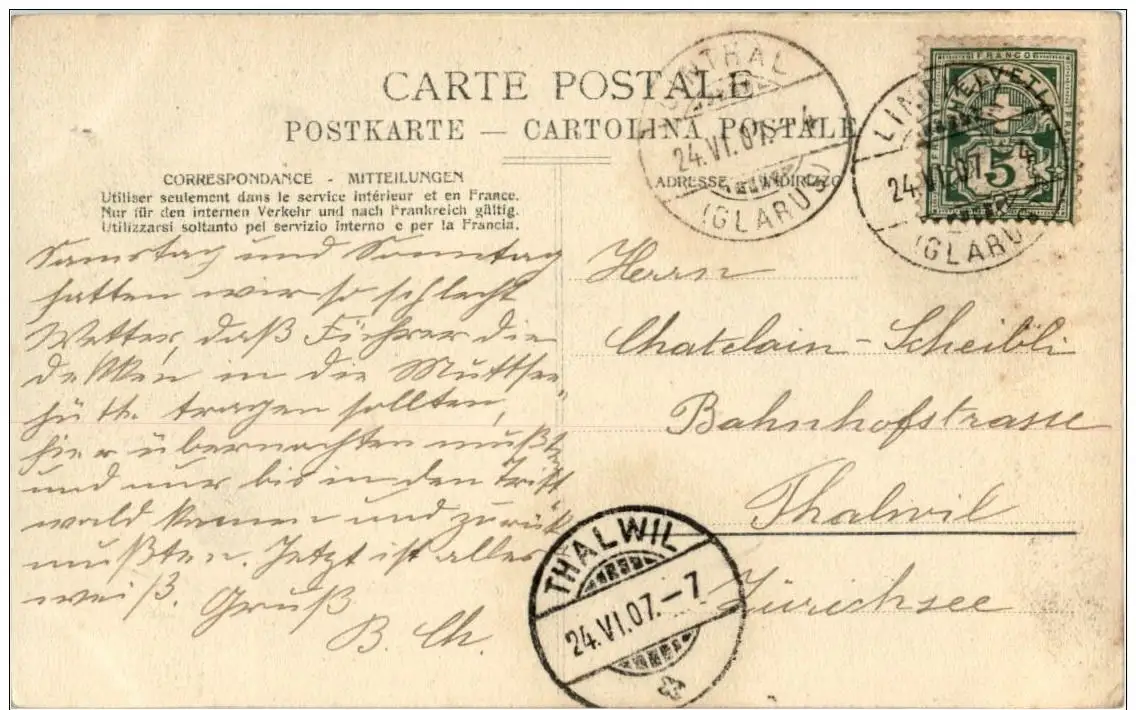 CARTE POSTALE
POSTKARTE — CARTOLINA POSTALE
CORRESPONDANCE - MITTEILUNGEN
Utiliser seulement dans le service intérieur et en France.
Nur für den internen Verkehr und nach Frankreich gültig.
Utilizzarsi soltanto pel servizio interno e per la Francia.
Samstag und Sonntag
hatten wir so schlecht
Wetter, daß Führer die
in die Muttsee
tragen sollten,
hier übernachten mußten
und nur bis in den Trift
wald kamen und zurück
mußten. Jetzt ist alles
weiß. Gruß
B. Ch.
ADRESSE INDIRIZZO
Herrn
Chatelain-Scheibli
Bahnhofstrasse
Thalwil
Zürichsee
LINTHAL
24.VI.07.-4
(GLARUS)
FRANCO
HELVETIA
5
LINTHAL
24.VI.07.-4
(GLARUS)
THALWIL
24.VI.07.-7